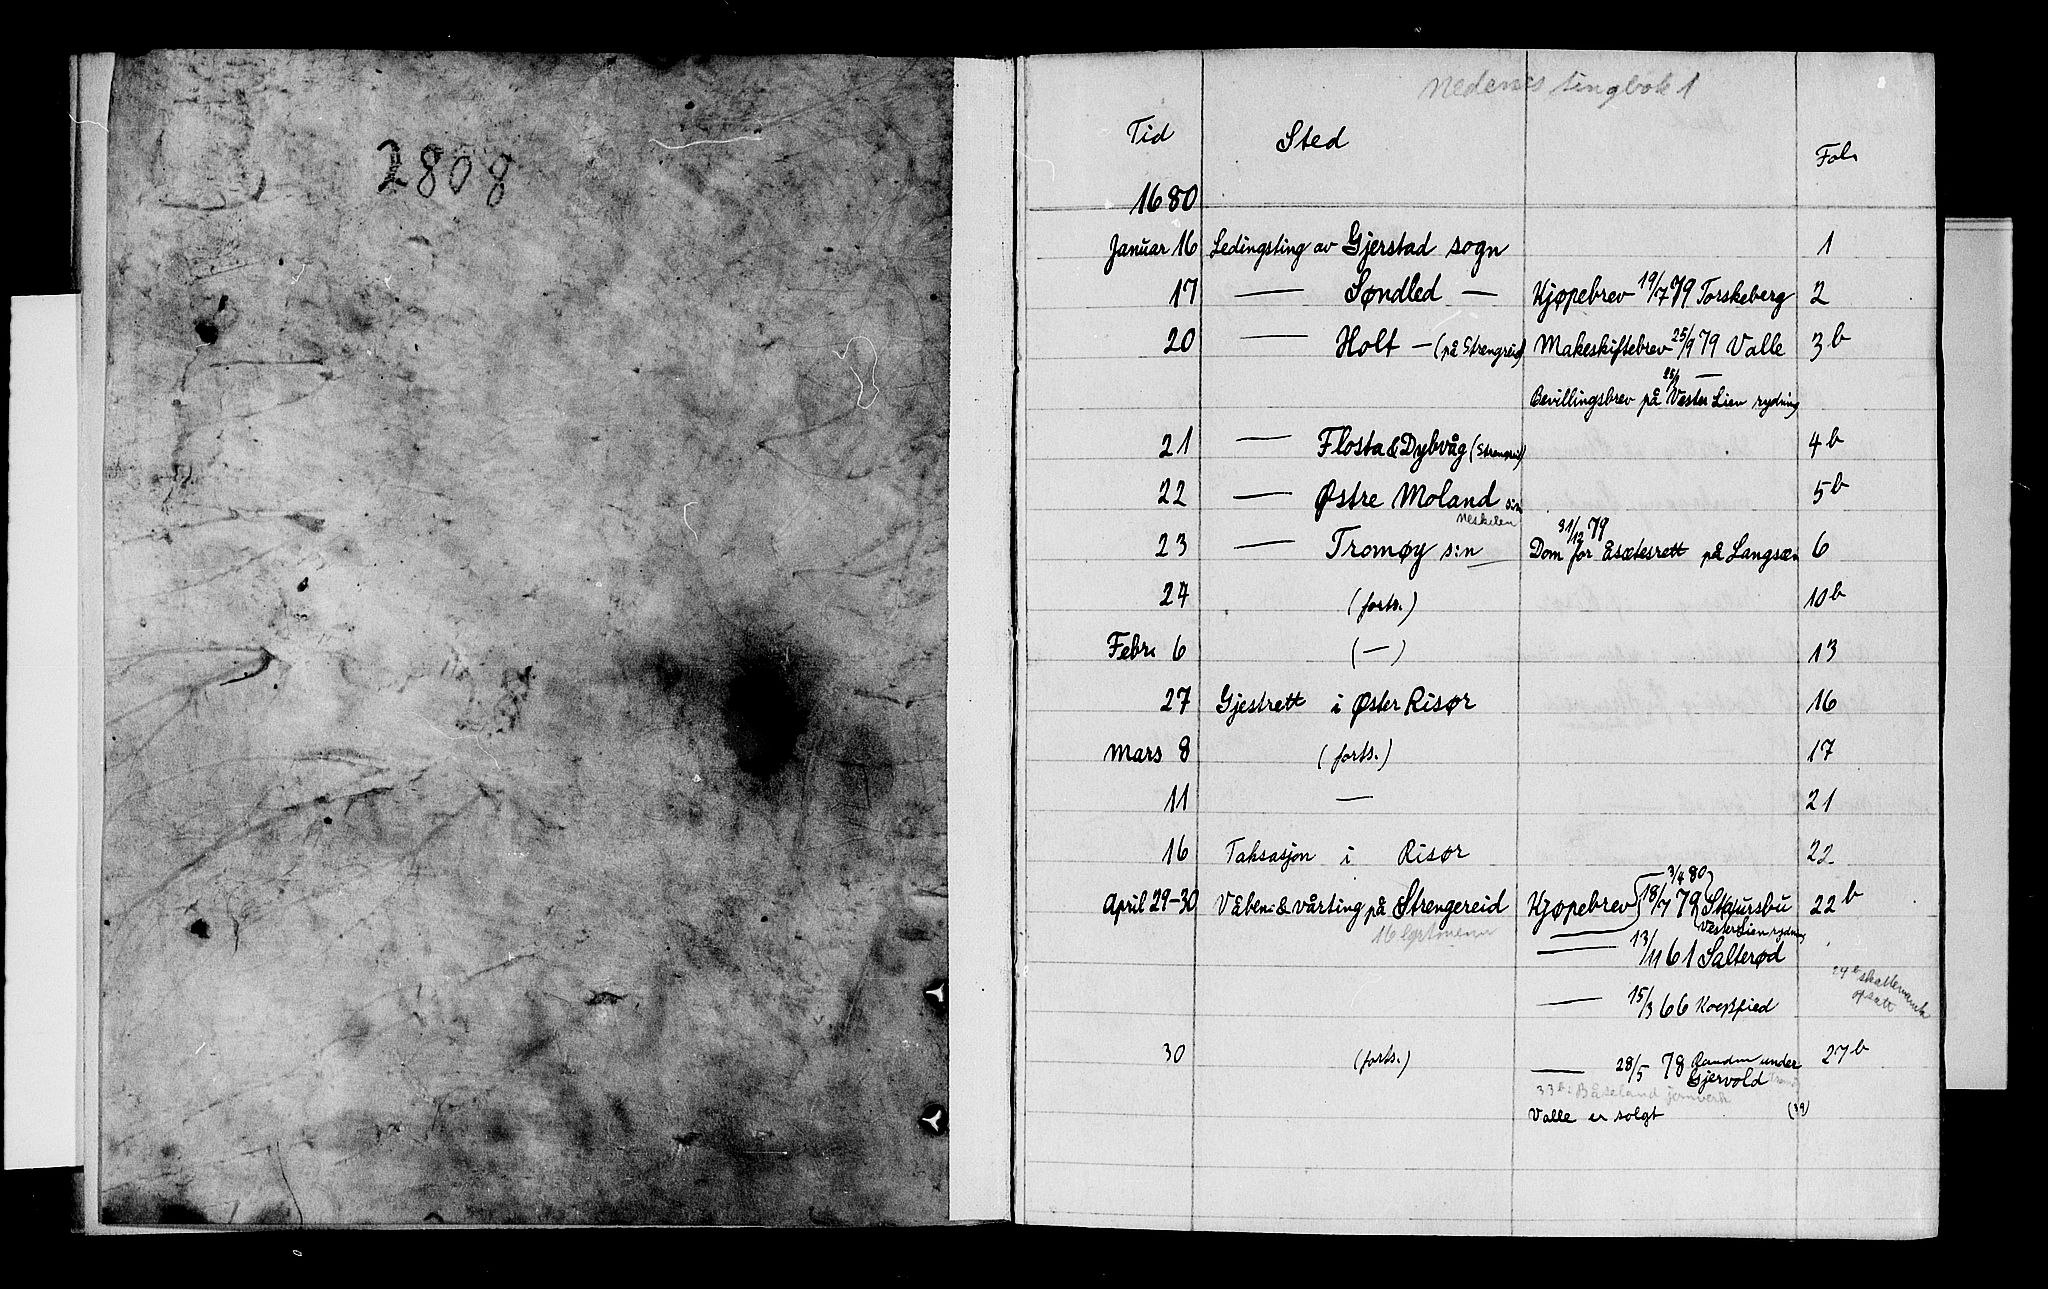 2808
Nedenes tingbok 1
Tid Sted Fol.
1680
Januar 16 Ledingsting av Gjerstad sogn 1
17 — Søndled — Kjøpebrev 19/7 79 Torskeberg 2
20 — Holt — (på Strengreid) Makeskiftebrev 25/9 79 Valle 3b
Bevillingsbrev på Vester Lien rydning
21 — Flosta & Dybvåg (Strengreid) 4b
22 — Østre Moland 5b
Neskilen
23 — Tromøy s:n 31/12 79 Dom for Åsætesrett på Langsæ 6
24 (forts.) 10b
Febr. 6 (—) 13
27 Gjestrett i Øster Risør 16
Mars 8 (forts.) 17
11 — 21
16 Taksasjon i Risør 22
3/4 80
April 29-30 Våben: & vårting på Strengereid Kjøpebrev 18/7 79 22b
16 lgrtmenn Vester Lien rydning
— 13/11 61 Salterød
29b skattemank opsatt
— 15/3 66
30 (forts.) — 28/5 78 under 27b
Gjervold
33b: Båseland jernverk
Valle er solgt (39)